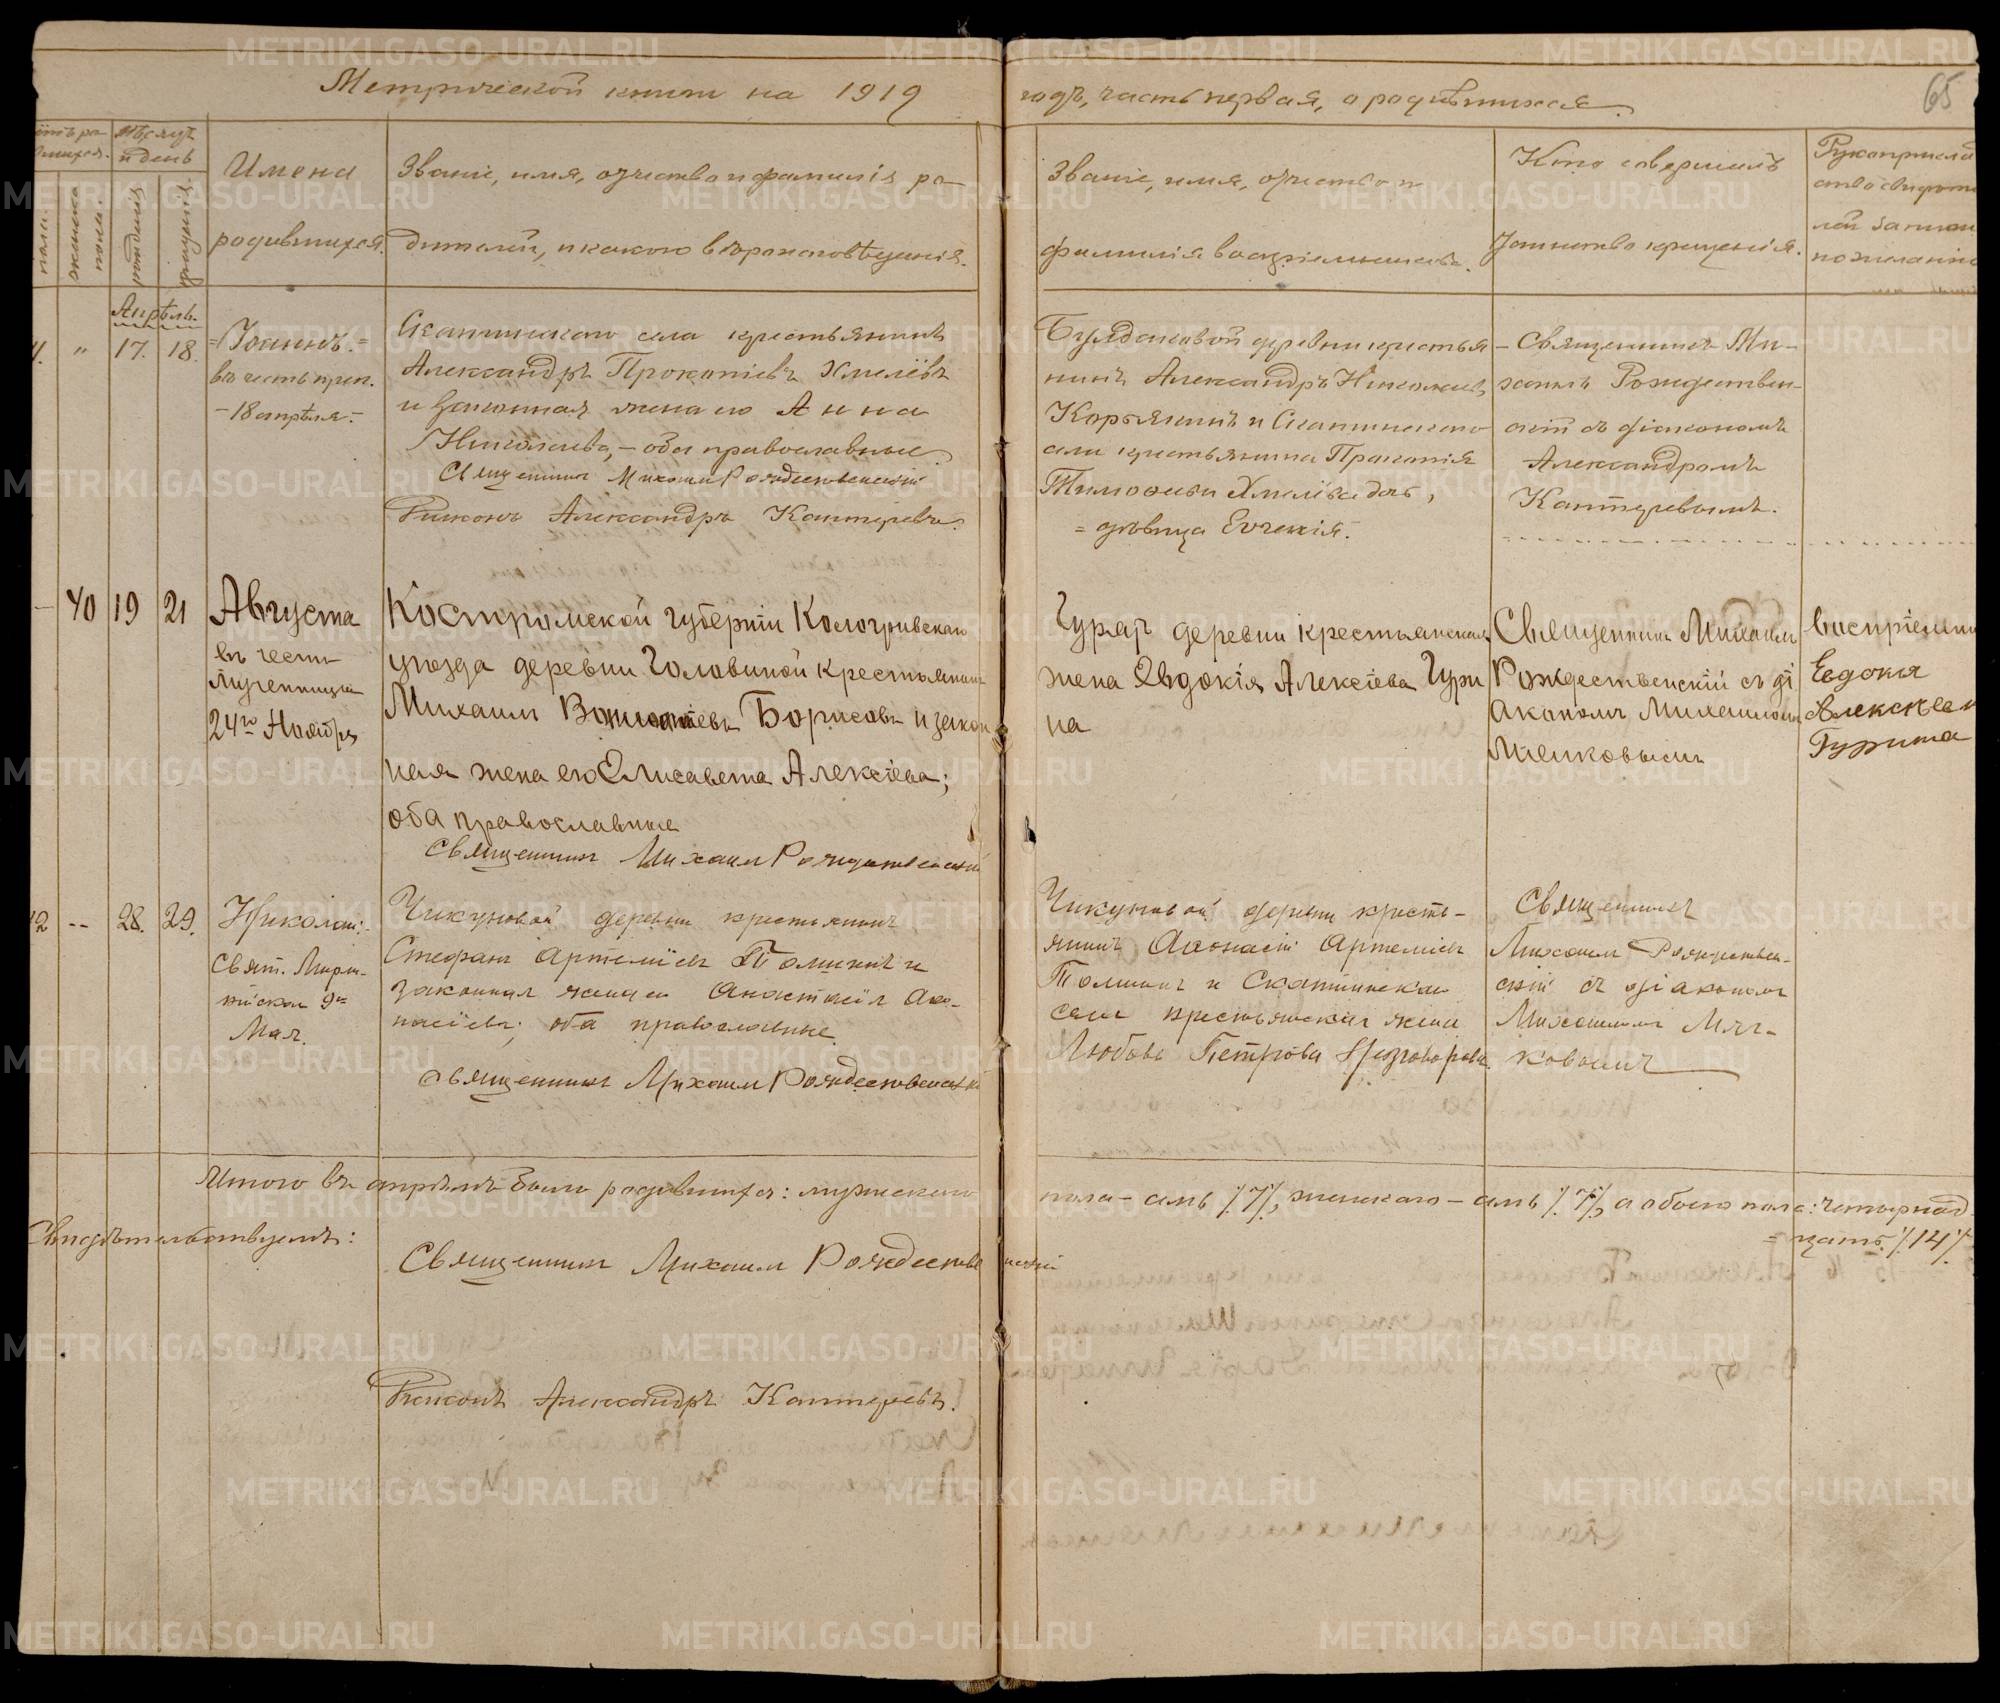 Метрической книги на 1919
годъ, часть первая, о родившихся.
65
Мѣсяцъ
и день
женска
пола.
рожденія
крещенія.
Имена
родившихся.
Званіе, имя, отчество и фамилія ро-
дителей, и какого вѣроисповѣданія.
Званіе, имя, отчество и
фамилія воспріемниковъ.
Кто совершалъ
таинство крещенія.
Апрѣль.
" 17. 18.
Іоаннъ.
въ честь преп.
- 18 апрѣля. -
Скатинскаго села крестьянинъ
Александръ Прокопіевъ Хмелёвъ
и законная жена его Анна
Николаева, - оба православные.
Священникъ Михаилъ Рождественскій
Діаконъ Александръ Каптеревъ.
Булдаковой деревни крестья-
нинъ Александръ Николаевъ
Корякинъ и Скатинскаго
села крестьянина Прокопія
Хмелёва дочь,
= дѣвица Евгенія.
Священникъ Ми-
хаилъ Рождествен-
скій съ діакономъ
Александромъ
Каптеревымъ.
40 19 21
Августа
въ честь
Мученицы
24го Ноября
Костромской губерніи Кологривскаго
уѣзда деревни Головиной крестьянинъ
Михаилъ Борисовъ и закон
ная жена его Елисавета Алексіева;
оба православные
Священникъ Михаилъ Рождественскій
деревни крестьянская
жена Евдокія Алексіева Гури
на
Священникъ Михаилъ
Рождественскій съ ді
акономъ Михаиломъ
Мяковымъ
Евдокія
Алексѣев
Гурина
-- 28. 29.
Николай:
Свят. Мирли-
кійскаго 9го
Мая.
Чикуновой деревни крестьянинъ
Стефанъ Артеміевъ и
законная жена его Анастасія Аѳа-
насіева; оба православные.
Священникъ Михаилъ Рождественскій
Чикуновой деревни кресть-
янинъ Аѳанасій Артеміевъ
и Скатинскаго
села крестьянская жена
Любовь Петрова
Священникъ
Михаилъ Рождествен-
скій съ діакономъ
Михаиломъ Мяг-
ковымъ
Итого въ апрѣлѣ было родившихся: мужескаго
пола - семь /7/, женскаго - семь /7/, а обоего пола: четырнад-
= цать. /14/
Свидѣтельствуемъ:
Священникъ Михаилъ Рождественскій
Діаконъ Александръ Каптеревъ.